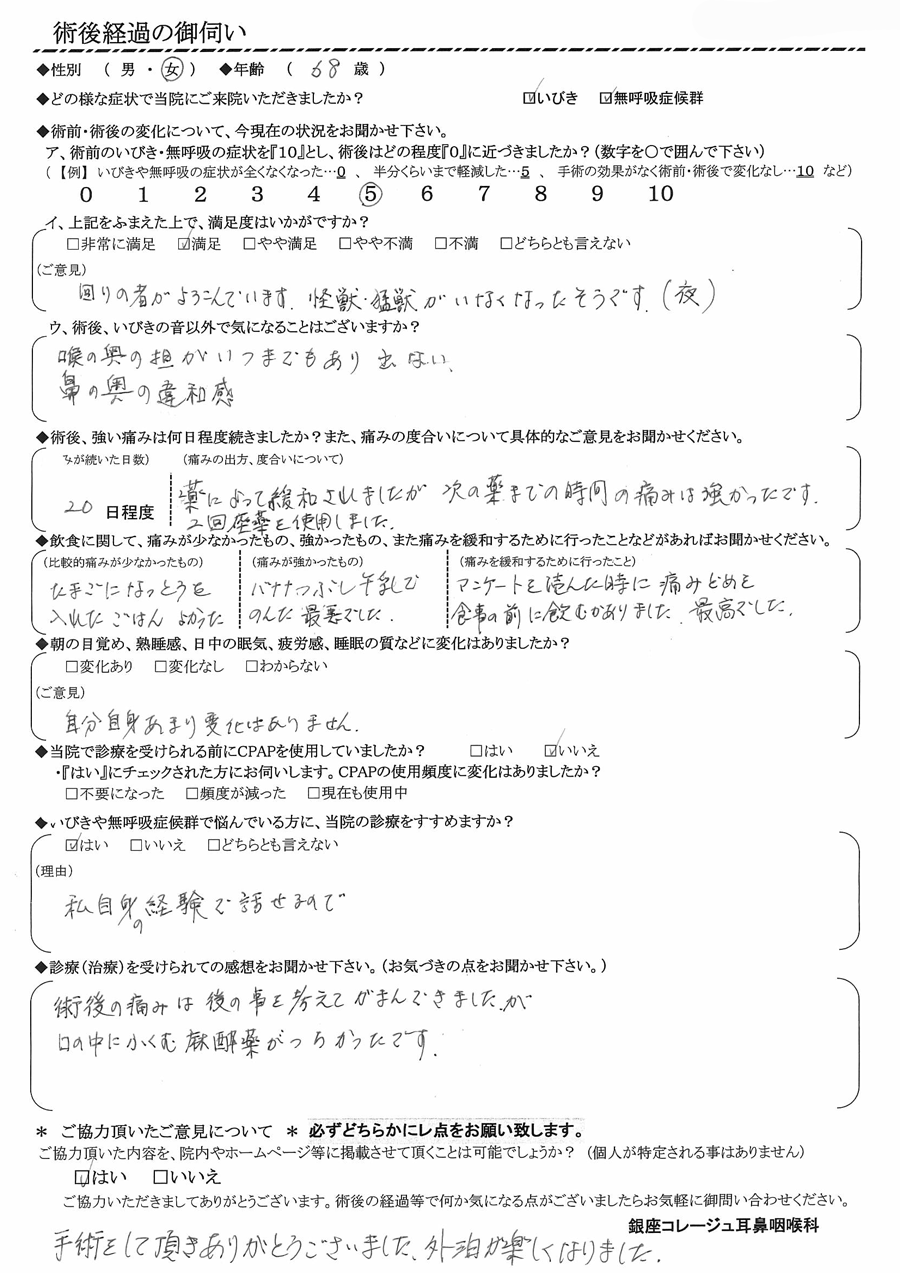 術後経過の御伺い
◆性別 ( 男 ・ 女 ) ◆年齢 ( 68 歳 )
◆どの様な症状で当院にご来院いただきましたか? ☑いびき ☑無呼吸症候群
◆術前・術後の変化について、今現在の状況をお聞かせ下さい。
ア、術前のいびき・無呼吸の症状を『10』とし、術後はどの程度『0』に近づきましたか?(数字を〇で囲んで下さい)
(【例】 いびきや無呼吸の症状が全くなくなった…0 、 半分くらいまで軽減した…5 、 手術の効果がなく術前・術後で変化なし…10 など)
0 1 2 3 4 5 6 7 8 9 10
イ、上記をふまえた上で、満足度はいかがですか?
□非常に満足 ☑満足 □やや満足 □やや不満 □不満 □どちらとも言えない
(ご意見)
回りの者がよろこんでいます。怪獣・猛獣がいなくなったそうです。(夜)
ウ、術後、いびきの音以外で気になることはございますか?
喉の奥の担がいつまでもあり出ない、
鼻の奥の違和感
◆術後、強い痛みは何日程度続きましたか?また、痛みの度合いについて具体的なご意見をお聞かせください。
みが続いた日数) (痛みの出方、度合いについて)
薬によって緩和されましたが 次の薬までの時間の痛みは強かったです.
20 日程度 2回座薬を使用しました.
◆飲食に関して、痛みが少なかったもの、強かったもの、また痛みを緩和するために行ったことなどがあればお聞かせください。
(比較的痛みが少なかったもの) (痛みが強かったもの) (痛みを緩和するために行ったこと)
たまごになっとうを バナナつぶし牛乳で アンケートを読んだ時に痛みどめを
入れたごはん よかった のんだ 最悪でした. 食事の前に飲むがありました. 最高でした.
◆朝の目覚め、熟睡感、日中の眠気、疲労感、睡眠の質などに変化はありましたか?
□変化あり □変化なし □わからない
(ご意見)
自分自身あまり変化はありません.
◆当院で診療を受けられる前にCPAPを使用していましたか? □はい ☑いいえ
・『はい』にチェックされた方にお伺いします。CPAPの使用頻度に変化はありましたか?
□不要になった □頻度が減った □現在も使用中
◆いびきや無呼吸症候群で悩んでいる方に、当院の診療をすすめますか?
☑はい □いいえ □どちらとも言えない
(理由)
私自身の経験で話せるので
◆診療(治療)を受けられての感想をお聞かせ下さい。(お気づきの点をお聞かせ下さい。)
術後の痛みは後の事を考えてがまんできましたが
口の中にふくむ麻酔薬がつらかったです.
＊ ご協力頂いたご意見について ＊ 必ずどちらかにレ点をお願い致します。
ご協力頂いた内容を、院内やホームページ等に掲載させて頂くことは可能でしょうか? (個人が特定される事はありません)
☑はい □いいえ
ご協力いただきましてありがとうございます。術後の経過等で何か気になる点がございましたらお気軽に御問い合わせください。
銀座コレージュ耳鼻咽喉科
手術をして頂きありがとうございました、外泊が楽しくなりました.